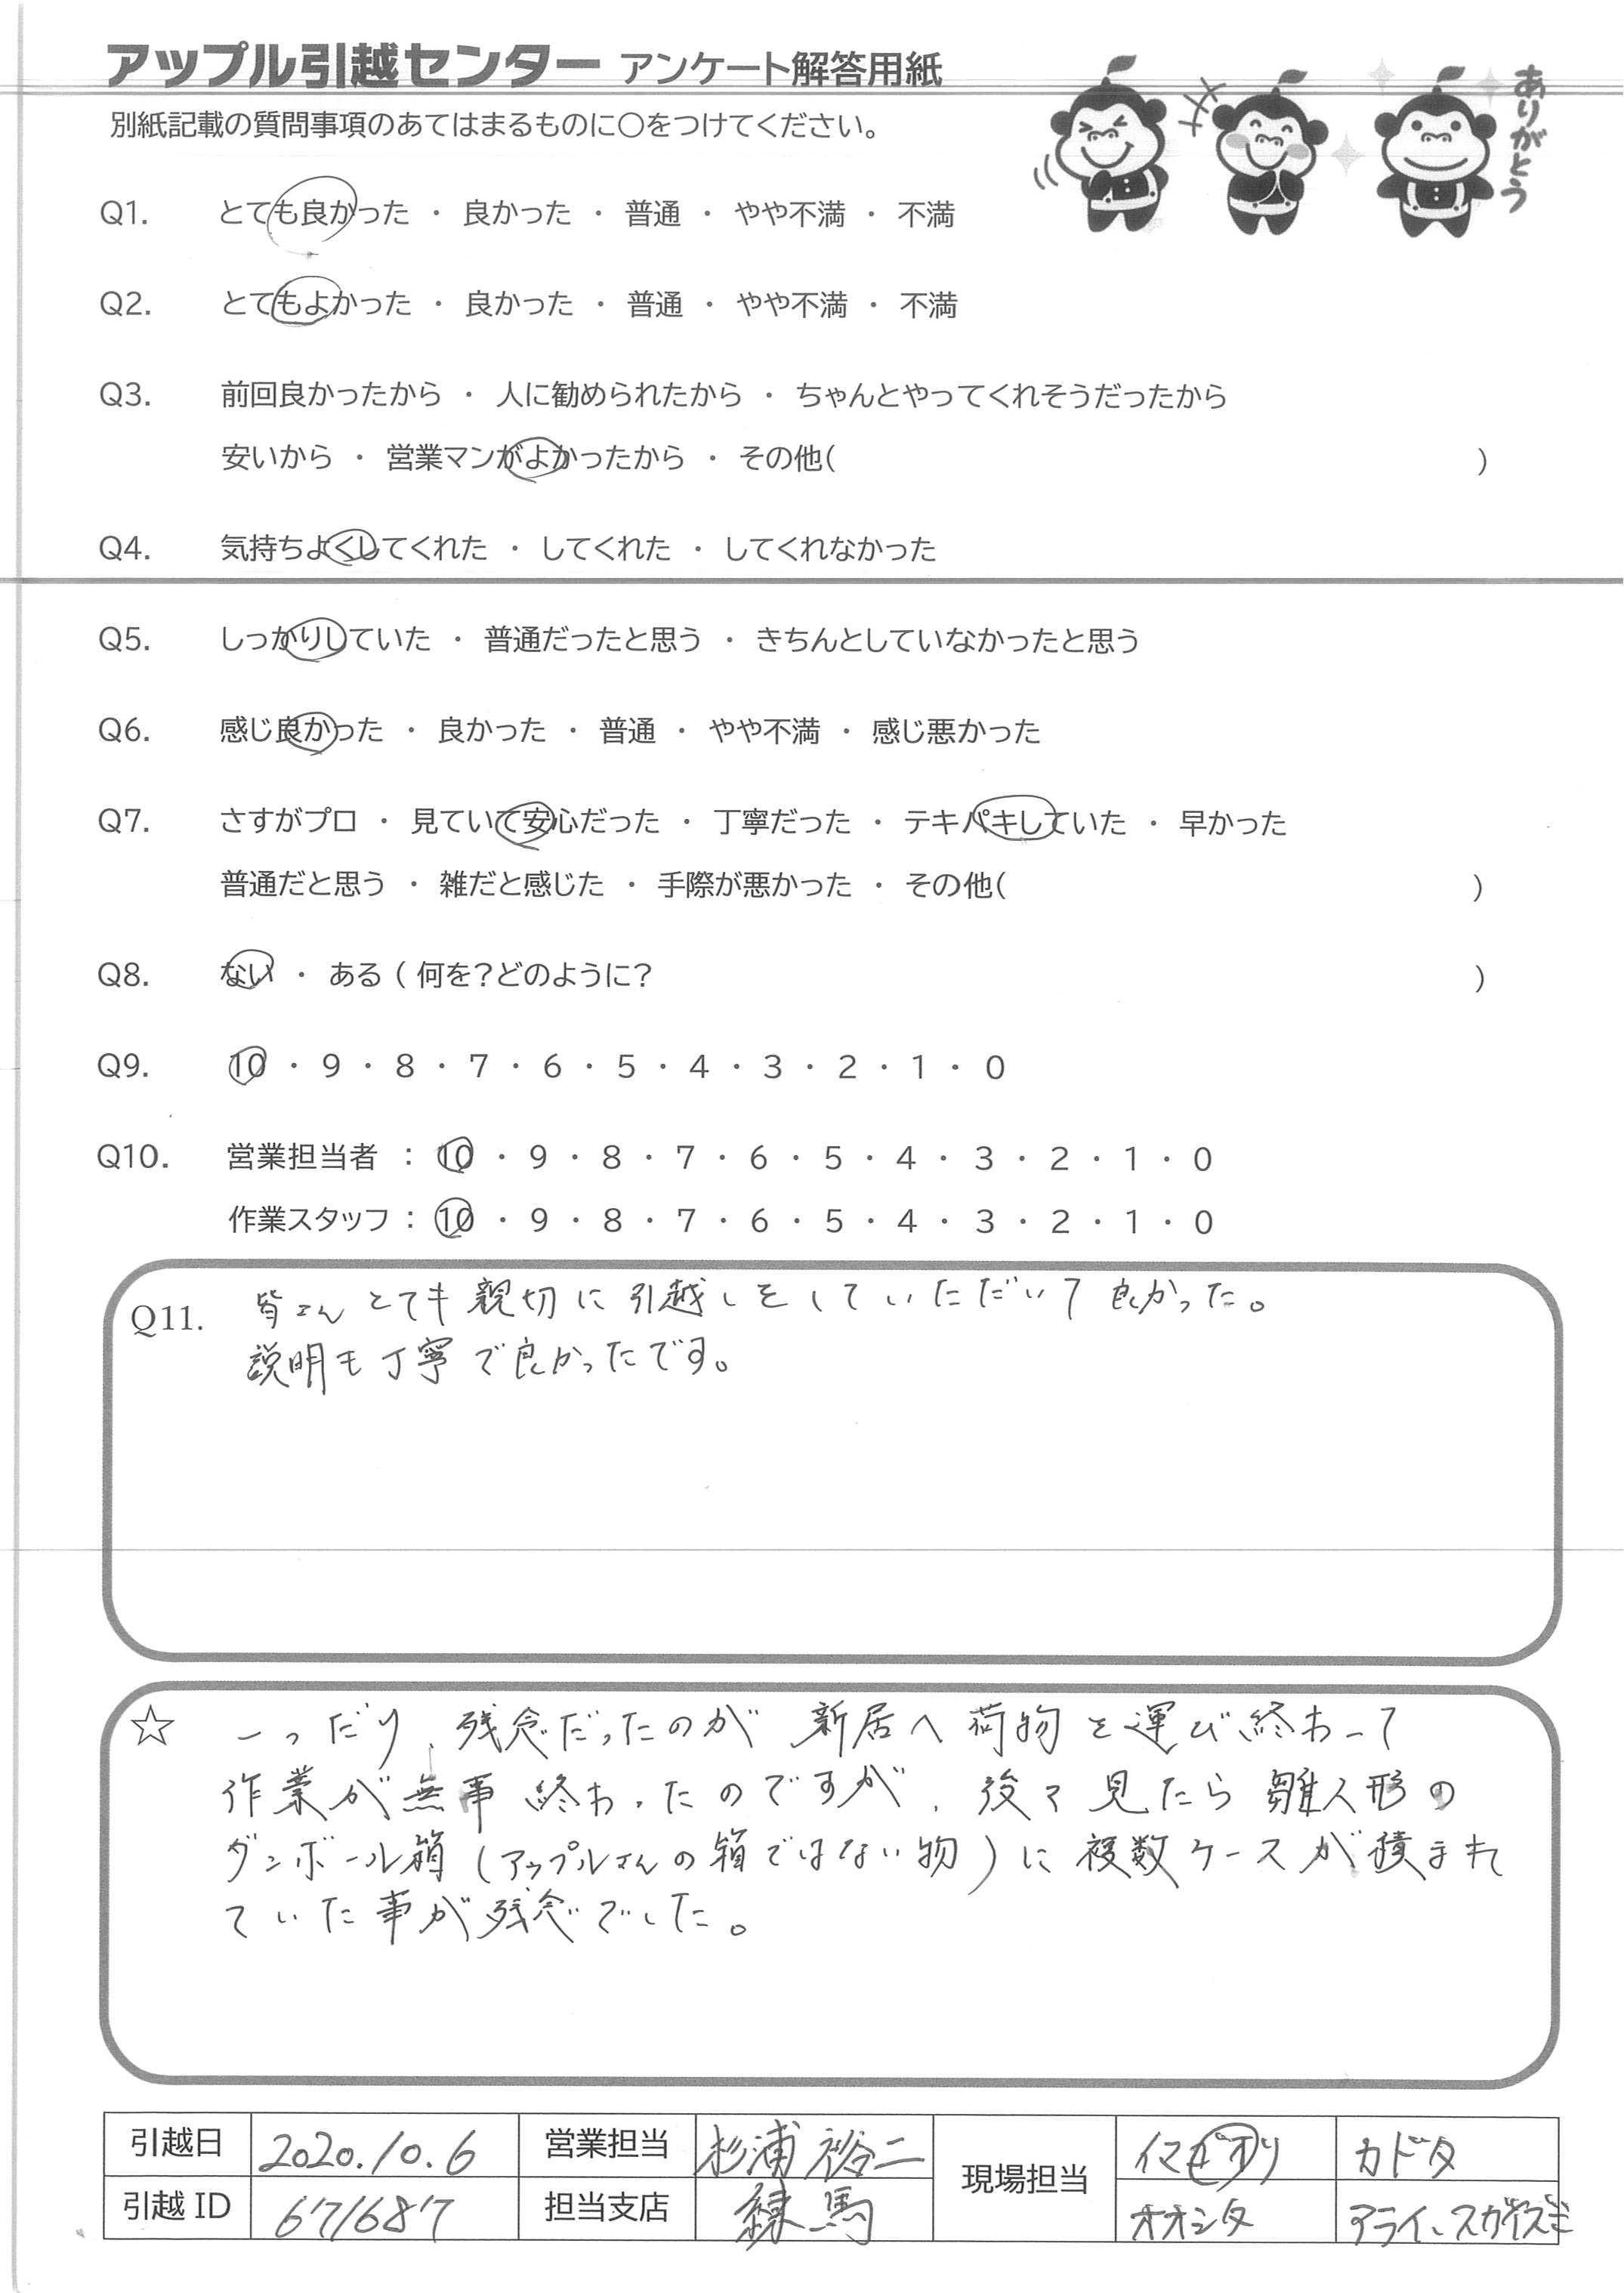 アップル引越センター アンケート解答用紙
別紙記載の質問事項のあてはまるものに〇をつけてください。
ありがとう
Q1. とても良かった ・ 良かった ・ 普通 ・ やや不満 ・ 不満
Q2. とてもよかった ・ 良かった ・ 普通 ・ やや不満 ・ 不満
Q3. 前回良かったから ・ 人に勧められたから ・ ちゃんとやってくれそうだったから
安いから ・ 営業マンがよかったから ・ その他( )
Q4. 気持ちよくしてくれた ・ してくれた ・ してくれなかった
Q5. しっかりしていた ・ 普通だったと思う ・ きちんとしていなかったと思う
Q6. 感じ良かった ・ 良かった ・ 普通 ・ やや不満 ・ 感じ悪かった
Q7. さすがプロ ・ 見ていて安心だった ・ 丁寧だった ・ テキパキしていた ・ 早かった
普通だと思う ・ 雑だと感じた ・ 手際が悪かった ・ その他( )
Q8. ない ・ ある ( 何を?どのように? )
Q9. 10 ・ 9 ・ 8 ・ 7 ・ 6 ・ 5 ・ 4 ・ 3 ・ 2 ・ 1 ・ 0
Q10. 営業担当者 : 10 ・ 9 ・ 8 ・ 7 ・ 6 ・ 5 ・ 4 ・ 3 ・ 2 ・ 1 ・ 0
作業スタッフ : 10 ・ 9 ・ 8 ・ 7 ・ 6 ・ 5 ・ 4 ・ 3 ・ 2 ・ 1 ・ 0
Q11. 皆さんとても親切に引越しをしていただいて良かった。
説明も丁寧で良かったです。
☆ 一つだけ、残念だったのが新居へ荷物を運び終わって
作業が無事終わったのですが、後で見たら雛人形の
ダンボール箱(アップルさんの箱ではない物)に複数ケースが積まれ
ていた事が残念でした。
引越日 2020.10.6 営業担当 杉浦 裕二 現場担当 カドタ
引越 ID 671687 担当支店 練馬 オオシタ アライ、